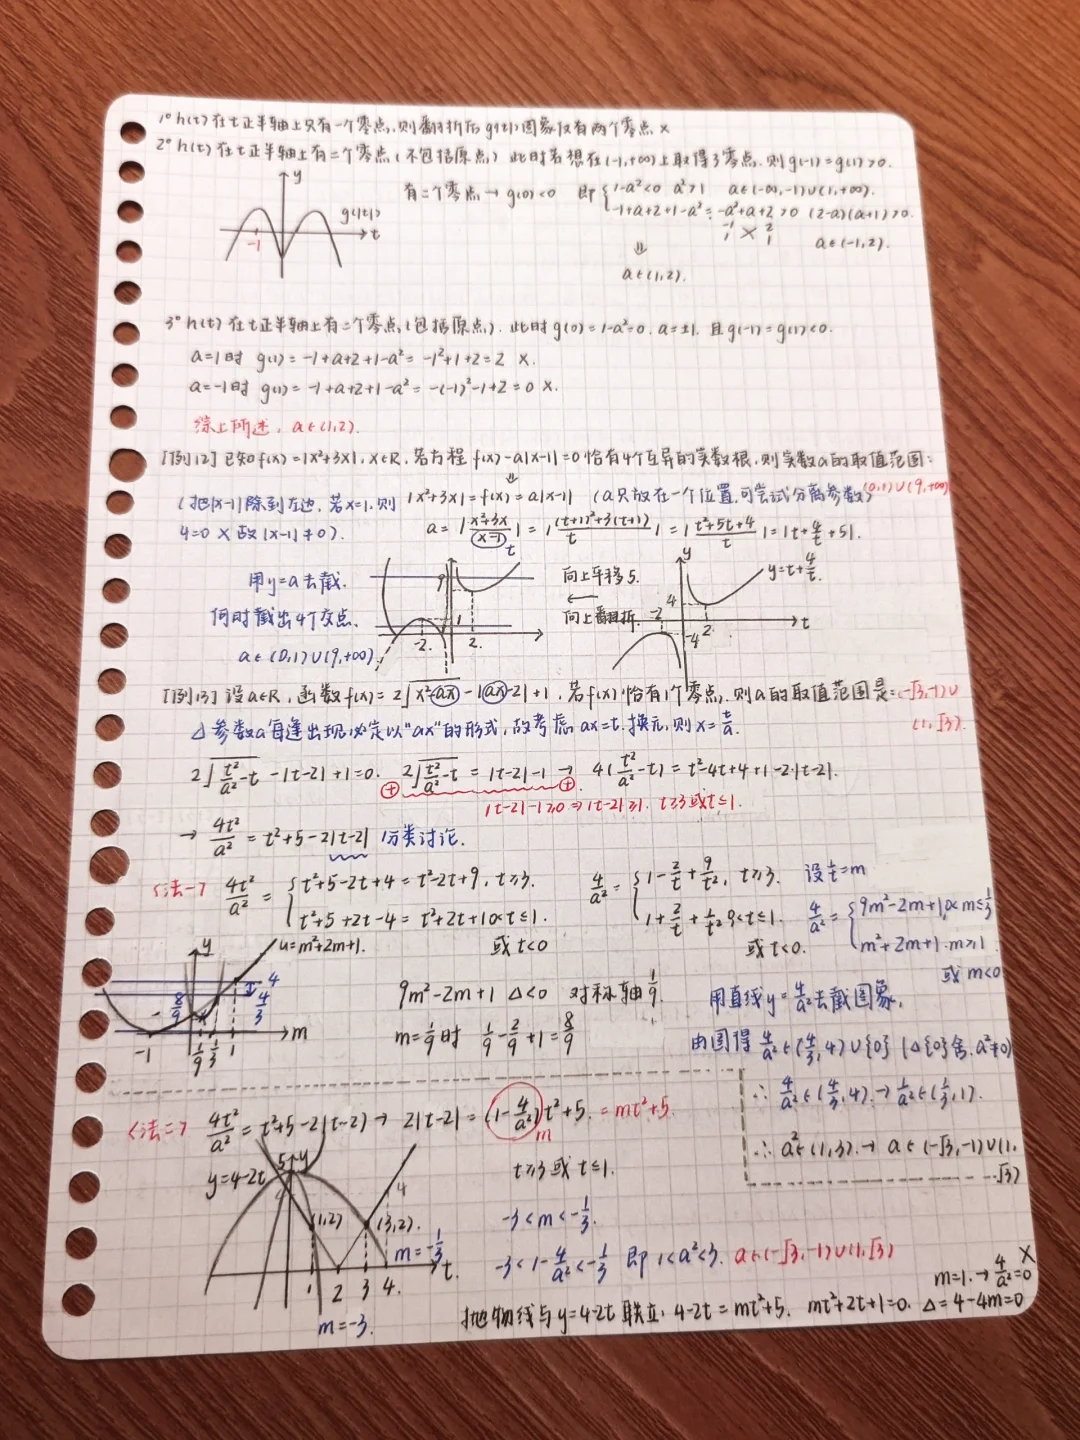 1° h(t)在t正半轴上只有一个零点,则翻折后g(t)图象仅有两个零点 ×
2° h(t)在t正半轴上有二个零点(不包括原点) 此时若想在(-1,+∞)上取得3零点,则g(-1)=g(1)>0.
有二个零点→g(0)<0 即 {1-a²<0 a²>1 a∈(-∞,-1)∪(1,+∞).
-1+a+2+1-a²=-a²+a+2>0 (2-a)(a+1)>0.
a∈(-1,2).
y g(t) -1 t
⇓
a∈(1,2).
3° h(t)在t正半轴上有二个零点(包括原点). 此时g(0)=1-a²=0. a=±1. 且g(-1)=g(1)<0.
a=1时 g(1)=-1+a+2+1-a²=-1²+1+2=2 ×.
a=-1时 g(1)=-1+a+2+1-a²=-(-1)²-1+2=0 ×.
综上所述, a∈(1,2).
[例12] 已知f(x)=|x²+3x|, x∈R, 若方程 f(x)-a|x-1|=0恰有4个互异的实数根,则实数a的取值范围:
(0,1)∪(9,+∞)
(把|x-1|除到左边, 若x=1,则 |x²+3x|=f(x)=a|x-1| (a只放在一个位置,可尝试分离参数)
4=0 × 故|x-1|≠0). a=|x²+3x/(x-1)|=|(t+1)²+3(t+1)/t|=|t²+5t+4/t|=|t+4/t+5|.
t
用y=a去截.
何时截出4个交点.
a∈(0,1)∪(9,+∞)
9 1 -2 2
向上平移5.
向上翻折.
y y=t+4/t. 4 -2 2 -4 t
[例13] 设a∈R, 函数f(x)=2√(x²-ax)-|ax-2|+1, 若f(x)恰有1个零点, 则a的取值范围是: (-√3,-1)∪
(1,√3).
△ 参数a每逢出现必定以"ax"的形式, 故考虑ax=t.换元,则x=t/a.
2√(t²/a²-t)-|t-2|+1=0. 2√(t²/a²-t)=|t-2|-1 → 4(t²/a²-t)=t²-4t+4+1-2·|t-2|.
⊕ ⊕ |t-2|-1≥0⇒|t-2|≥1. t≥3或t≤1.
→ 4t²/a²=t²+5-2|t-2| 分类讨论.
<法一> 4t²/a²={t²+5-2t+4=t²-2t+9, t≥3. 4/a²={1-2/t+9/t², t≥3. 设1/t=m
t²+5+2t-4=t²+2t+1,0<t≤1. 1+2/t+1/t²,0<t≤1. 4/a²={9m²-2m+1,0<m≤1/3
或t<0 或t<0. m²+2m+1. m≥1
或m<0
y u=m²+2m+1. 4 4/3 8/9 -1 1/9 1/3 1 m
9m²-2m+1 △<0 对称轴1/9.
m=1/9时 1/9-2/9+1=8/9
用直线y=4/a²去截图象,
由图得4/a²∈(4/3,4)∪{0} (△{0}舍,a²≠0)
∴ 4/a²∈(4/3,4).→1/a²∈(1/3,1).
∴a²∈(1,3).→ a∈(-√3,-1)∪(1,
√3)
<法二> 4t²/a²=t²+5-2|t-2|→ 2|t-2|=(1-4/a²)t²+5. =mt²+5.
m
t≥3或t≤1.
y=4-2t 5 y (1,2) (3,2). 4 m=-1/3 1 2 3 4 t.
-3<m<-1/3.
-3<1-4/a²<-1/3 即 1<a²<3. a∈(-√3,-1)∪(1,√3)
m=-3.
抛物线与y=4-2t联立. 4-2t=mt²+5. mt²+2t+1=0. △=4-4m=0
m=1.→4/a²=0 ×